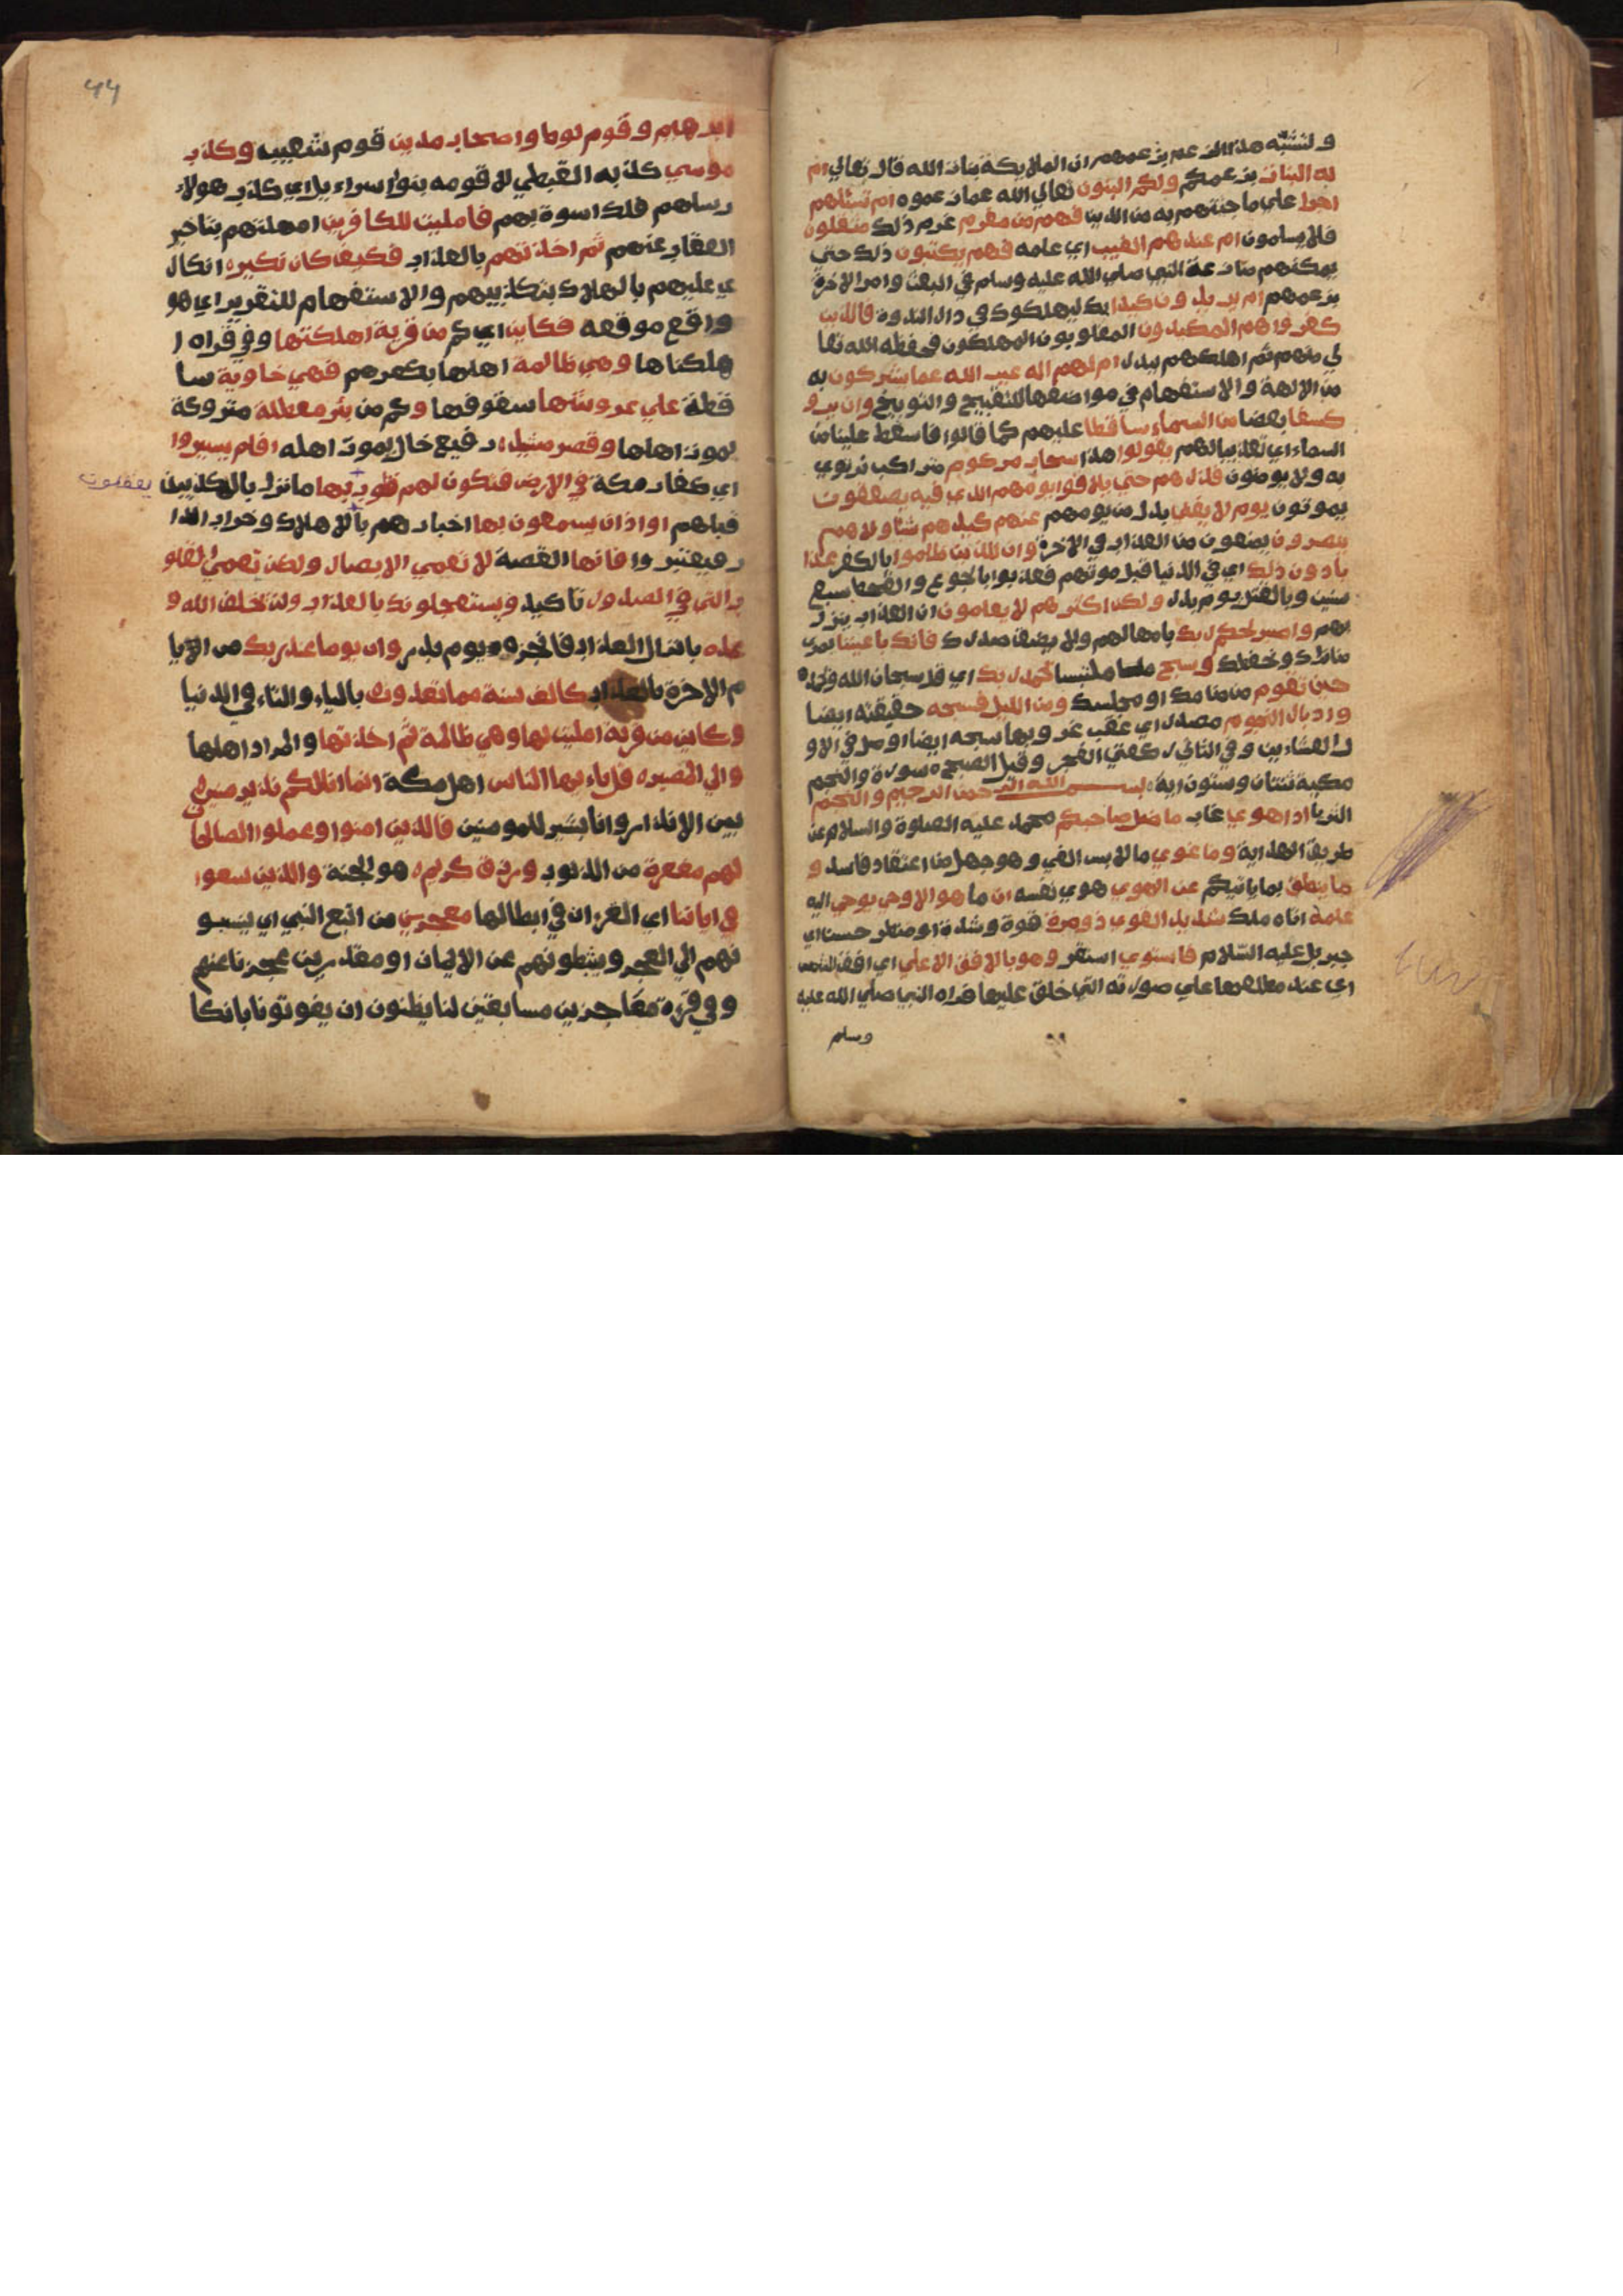 ولنشبه هذا الزعم بزعمهم ان الملايكة بنات الله قال تعالي ام
له البنات بزعمكم ولكم البنون تعالي الله عما زعموه ام تسئلهم
اجرا علي ما جئتهم به من الدين فهم من مغرم غرم ذلك مثقلون
فلا يسلمون ام عندهم الغيب اي علمه فهم يكتبون ذلك حتي
يمكنهم منازعة النبي صلي الله عليه وسلم في البعث وامر الاخرة
بزعمهم ام يريدون كيدا بك ليهلكوك في دار الندوة فالذين
كفروا هم المكيدون المغلوبون المهلكون فحفظه الله تعا
لي منهم ثم اهلكهم ببدر ام لهم اله غير الله عما يشركون به
من الالهة والاستفهام في مواضعها للتقبيح والتوبيخ وان يرو
كسفا بعضا من السماء ساقطا عليهم كما قالوا فاسقط علينا من
السماء اي تعذيبا لهم يقولوا هذا سحاب مركوم متراكب نرتوي
به ولا يومنون فذرهم حتي يلاقوا يومهم الذي فيه يصعقون
يموتون يوم لا يغني بدل من يومهم عنهم كيدهم شئا ولا هم
ينصرون يمنعون من العذاب في الاخرة وان للذين ظلموا بالكفر عذا
با دون ذلك اي في الدنيا قبل موتهم فعذبوا بالجوع والقحط سبع
سنين وبالقتل يوم بدر ولكن اكثرهم لا يعلمون ان العذاب ينزل
بهم واصبر لحكم ربك بامهالهم ولا يضيق صدرك فانك باعيننا بمرى
منا نراك ونحفظك وسبح ملتبسا بحمد ربك اي قل سبحان الله وبحمده
حين تقوم من منامك او مجلسك ومن الليل فسبحه حقيقة ايضا
وادبار النجوم مصدر اي عقب غروبها سبحه ايضا او صل في الاو
ل العشاءين وفي الثاني ركعتي الفجر وقيل الصبح ه سورة والنجم
مكية ثنتان وستون اية بسم الله الرحمن الرحيم والنجم
الثريا اذا هوي غاب ما ضل صاحبكم محمد عليه الصلوة والسلام عن
طريق الهداية وما غوي ما لابس الغي وهو جهل من اعتقاد فاسد و
ما ينطق بما ياتيكم عن الهوي هوي نفسه ان ما هو الا وحي يوحي اليه
علمه اياه ملك شديد القوي ذو مرة قوة وشدة او منظر حسن اي
جبريل عليه السلام فاستوي استقر وهو بالافق الاعلي اي افق الشمس
اي عند مطلعها علي صورته التي خلق عليها فراه النبي صلي الله عليه
وسلم
ابرهيم وقوم لوط واصحاب مدين قوم شعيب وكذب
موسي كذبه القبطي لا قومه بنوا اسراءيل اي كذب هولاء
رسلهم فلك اسوة بهم فامليت للكافرين امهلتهم بتاخير
العقاب عنهم ثم اخذتهم بالعذاب فكيف كان نكيره انكار
ي عليهم بالهلاك بتكذيبهم والاستفهام للتقرير اي هو
واقع موقعه فكاين اي كم من قرية اهلكتها وفي قراه ا
هلكناها وهي ظالمة اهلها بكفرهم فهي خاوية سا
قطة علي عروشها سقوفها وكم من بئر معطلة متروكة
بموت اهلها وقصر مشيد رفيع خال بموت اهله افلم يسيروا
اي كفار مكة في الارض فتكون لهم قلوب بها ما نزل بالمكذبين
يعقلون
قبلهم او اذان يسمعون بها اخبارهم بالاهلاك وخراب الدا
ر فيعتبروا فانها القصة لا تعمي الابصار ولكن تعمي القلو
ب التي في الصدور تاكيد ويستعجلونك بالعذاب ولن يخلف الله و
عده بانزال العذاب فانجزه يوم بدر وان يوما عند ربك من الايا
م الاخرة بالعذاب كالف سنة مما تعدون بالياء والتاء في الدنيا
وكاين من قرية امليت لها وهي ظالمة ثم اخذتها والمراد اهلها
والي المصيره قل يا ايها الناس اهل مكة انما انا لكم نذير مبين
بين الانذار وانا بشير للمومنين فالذين امنوا وعملوا الصالحا
لهم مغفرة من الذنوب ورزق كريم ه هو الجنة والذين سعوا
في اياتنا اي القران في ابطالها معجزين من اتبع النبي اي ينسبو
نهم الي العجز ويثبطونهم عن الايمان او مقدرين عجزنا عنهم
وفي قراة معاجزين مسابقين لنا يظنون ان يفوتونا بانكا